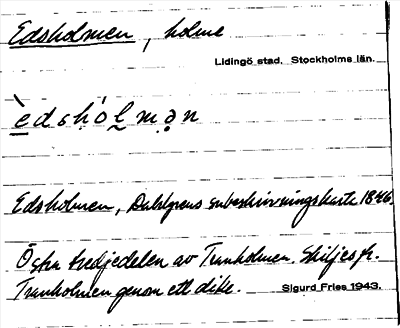 Edsholmen, holme
Lidingö stad. Stockholms län.
èdshólmən
Edsholmen, Dahlgrens subskrivningskarta 1846.
Östra tredjedelen av Tranholmen. Skiljes fr.
Tranholmen genom ett dike. Sigurd Fries 1943.